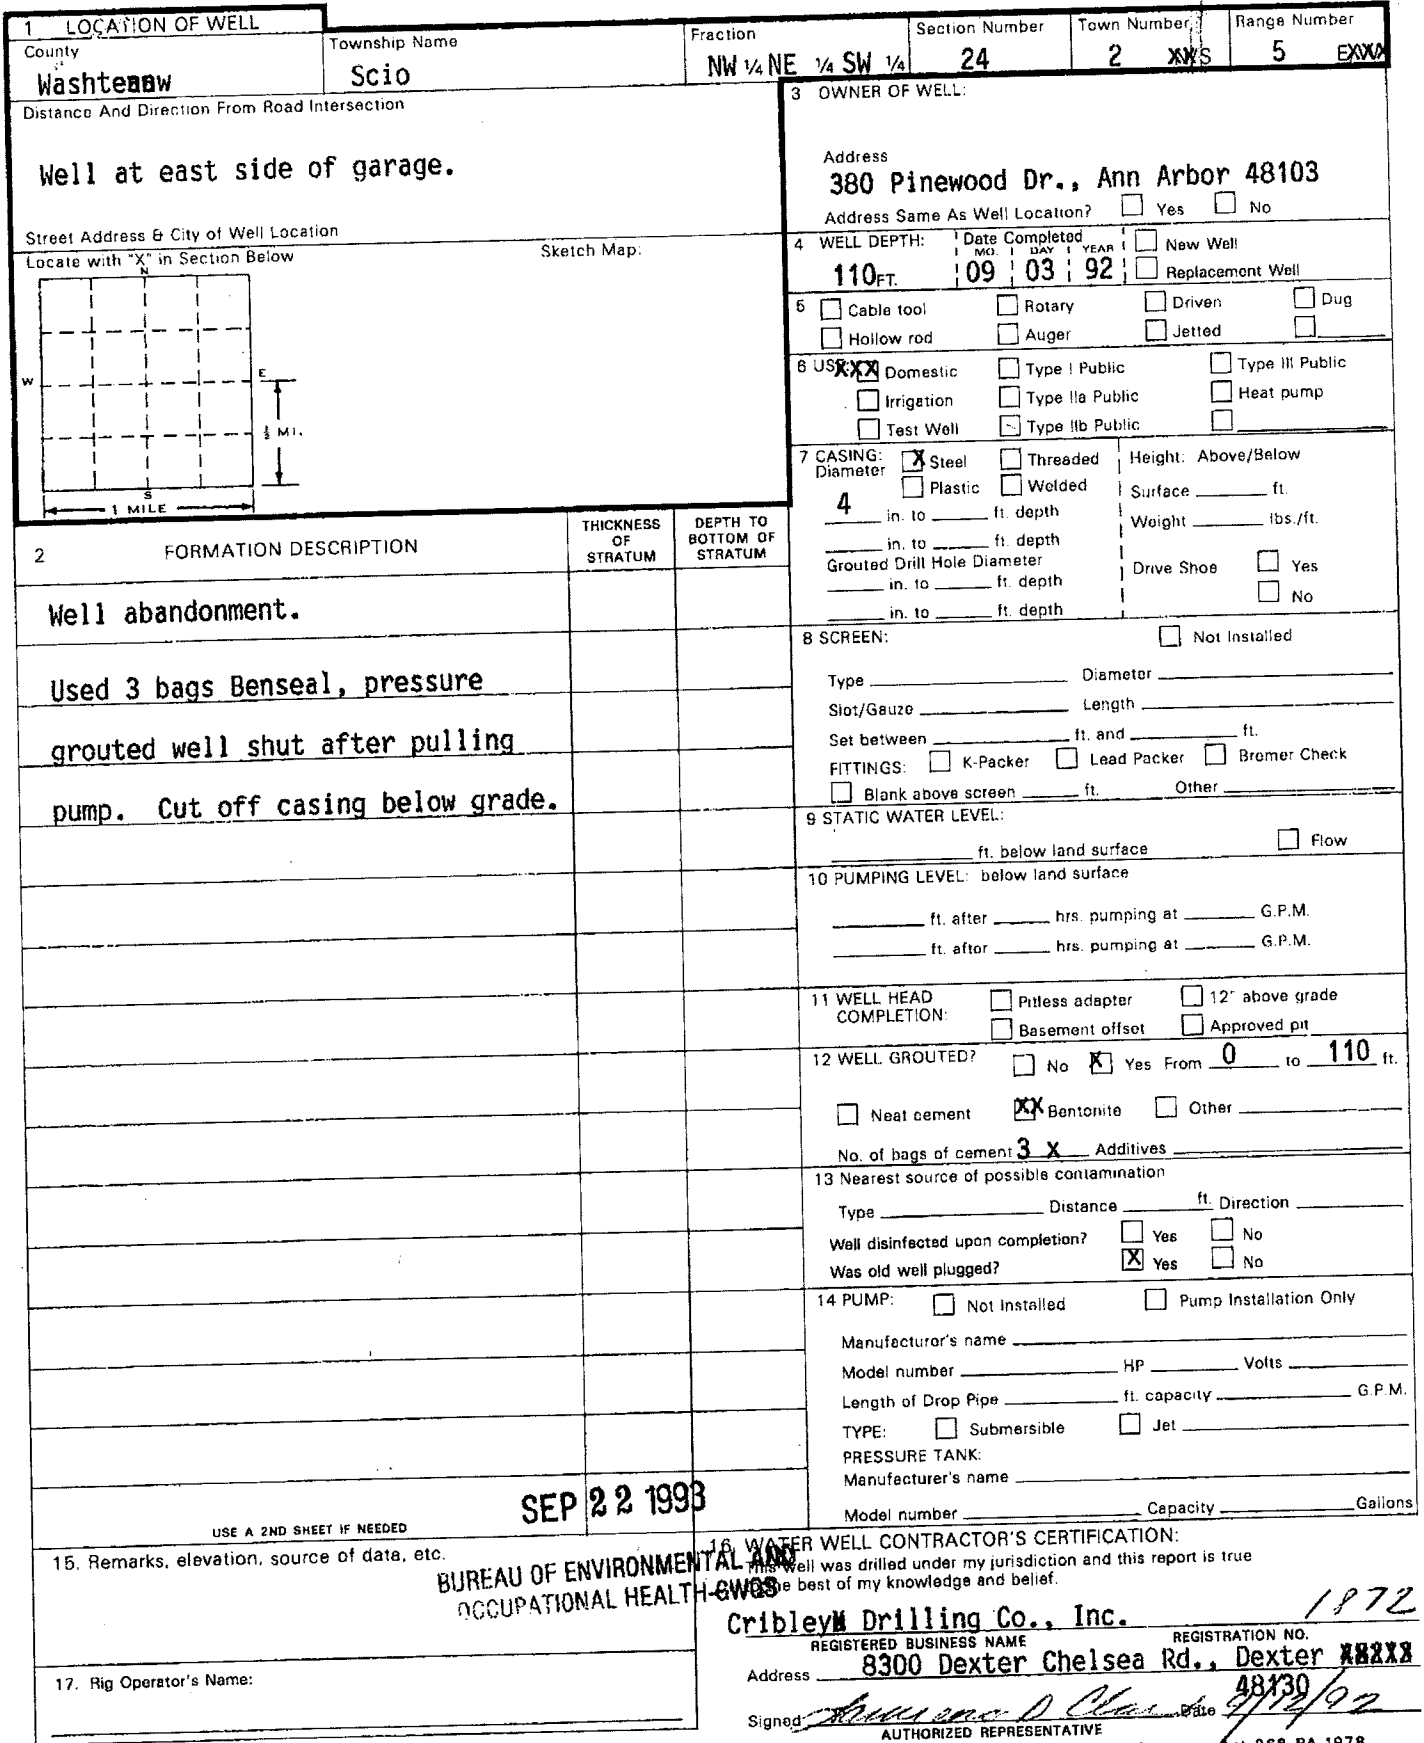 1 LOCATION OF WELL
County
Washtenaw
Township Name
Scio
Fraction
NW ¼ NE ¼ SW ¼
Section Number
24
Town Number
2 XXS
Range Number
5 EXXX
Distance And Direction From Road Intersection
Well at east side of garage.
Street Address & City of Well Location
Locate with "X" in Section Below
Sketch Map:
N
W
E
S
½ MI.
1 MILE
3 OWNER OF WELL:
Address
380 Pinewood Dr., Ann Arbor 48103
Address Same As Well Location? Yes No
4 WELL DEPTH:
110 FT.
Date Completed
MO. DAY YEAR
09 03 92
New Well
Replacement Well
5 Cable tool Rotary Driven Dug
Hollow rod Auger Jetted
6 USE: XXX Domestic Type I Public Type III Public
Irrigation Type IIa Public Heat pump
Test Well Type IIb Public
7 CASING: X Steel Threaded Height: Above/Below
Diameter Plastic Welded Surface ft.
4 in. to ft. depth Weight lbs./ft.
in. to ft. depth
Grouted Drill Hole Diameter Drive Shoe Yes
in. to ft. depth No
in. to ft. depth
2 FORMATION DESCRIPTION
THICKNESS OF STRATUM
DEPTH TO BOTTOM OF STRATUM
Well abandonment.
Used 3 bags Benseal, pressure
grouted well shut after pulling
pump. Cut off casing below grade.
8 SCREEN: Not Installed
Type Diameter
Slot/Gauze Length
Set between ft. and ft.
FITTINGS: K-Packer Lead Packer Bromer Check
Blank above screen ft. Other
9 STATIC WATER LEVEL:
ft. below land surface Flow
10 PUMPING LEVEL: below land surface
ft. after hrs. pumping at G.P.M.
ft. after hrs. pumping at G.P.M.
11 WELL HEAD COMPLETION: Pitless adapter 12" above grade
Basement offset Approved pit
12 WELL GROUTED? No X Yes From 0 to 110 ft.
Neat cement XX Bentonite Other
No. of bags of cement 3 X Additives
13 Nearest source of possible contamination
Type Distance ft. Direction
Well disinfected upon completion? Yes No
Was old well plugged? X Yes No
14 PUMP: Not Installed Pump Installation Only
Manufacturer's name
Model number HP Volts
Length of Drop Pipe ft. capacity G.P.M.
TYPE: Submersible Jet
PRESSURE TANK:
Manufacturer's name
Model number Capacity Gallons
SEP 22 1993
USE A 2ND SHEET IF NEEDED
15. Remarks, elevation, source of data, etc.
BUREAU OF ENVIRONMENTAL AND
OCCUPATIONAL HEALTH-GWQS
16. WATER WELL CONTRACTOR'S CERTIFICATION:
This well was drilled under my jurisdiction and this report is true
the best of my knowledge and belief.
Cribley Drilling Co., Inc. 1872
REGISTERED BUSINESS NAME REGISTRATION NO.
Address 8300 Dexter Chelsea Rd., Dexter
48130
17. Rig Operator's Name:
Signed Date 9/12/92
AUTHORIZED REPRESENTATIVE
368 PA 1978